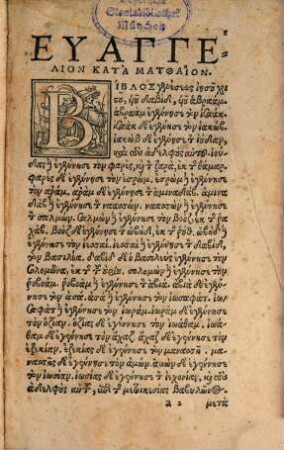 ΕΥΑΓΓΕ
ΛΙΟΝ ΚΑΤΑ ΜΑΤΘΑΙΟΝ.
ΒΙΒΛΟΣ γενέσεως ἰησοῦ
χριστοῦ, υἱοῦ δαβὶδ, υἱοῦ ἀβραάμ.
ἀβραὰμ ἐγέννησε τὸν ἰσαάκ.
ἰσαὰκ δὲ ἐγέννησε τὸν ἰακώβ.
ἰακὼβ δὲ ἐγέννησε τὸν ἰούδαν,
καὶ τοὺς ἀδελφοὺς αὐτοῦ. ἰού-
δας δὲ ἐγέννησε τὸν φαρὲς, καὶ τὸν ζαρὰ, ἐκ τῆς θάμαρ.
φαρὲς δὲ ἐγέννησε τὸν ἐσρώμ. ἐσρὼμ δὲ ἐγέννησε
τὸν ἀράμ. ἀρὰμ δὲ ἐγέννησε τὸν ἀμιναδάβ. ἀμινα
δὰβ δὲ ἐγέννησε τὸν ναασσών. ναασσὼν δὲ ἐγέννησε
τὸν σαλμών. Σαλμὼν δὲ ἐγέννησε τὸν Βοὸζ, ἐκ τῆς ῥα
χάβ. Βοὸζ δὲ ἐγέννησε τὸν ὠβὴδ, ἐκ τῆς ῥούθ. ὠβὴδ δὲ
ἐγέννησε τὸν ἰεσσαί. ἰεσσαὶ δὲ ἐγέννησε τὸν δαβὶδ
τὸν βασιλέα. δαβὶδ δὲ ὁ βασιλεὺς ἐγέννησε τὸν
Σολομῶνα, ἐκ τῆς τοῦ οὐρίου. σολομὼν δὲ ἐγέννησε τὸν
ῥοβοάμ. ῥοβοὰμ δὲ ἐγέννησε τὸν ἀβιά. ἀβιὰ δὲ ἐγέν-
νησε τὸν ἀσά. ἀσὰ δὲ ἐγέννησε τὸν ἰωσαφάτ. ἰω
σαφὰτ δὲ ἐγέννησε τὸν ἰωράμ. ἰωρὰμ δὲ ἐγέννησε
τὸν ὀζίαν. ὀζίας δὲ ἐγέννησε τὸν ἰωάθαμ. ἰωά
θαμ δὲ ἐγέννησε τὸν ἄχαζ. ἄχαζ δὲ ἐγέννησε τὸν
ἐζεκίαν. ἐζεκίας δὲ ἐγέννησε τὸν μανασσῆ. μα
νασσῆς δὲ ἐγέννησε τὸν ἀμών. ἀμὼν δὲ ἐγέννησε
τὸν ἰωσίαν. ἰωσίας δὲ ἐγέννησε τὸν ἰεχονίαν, καὶ τοὺς
ἀδελφοὺς αὐτοῦ, ἐπὶ τῆς μετοικεσίας Βαβυλῶνος.
a 2 μετὰ